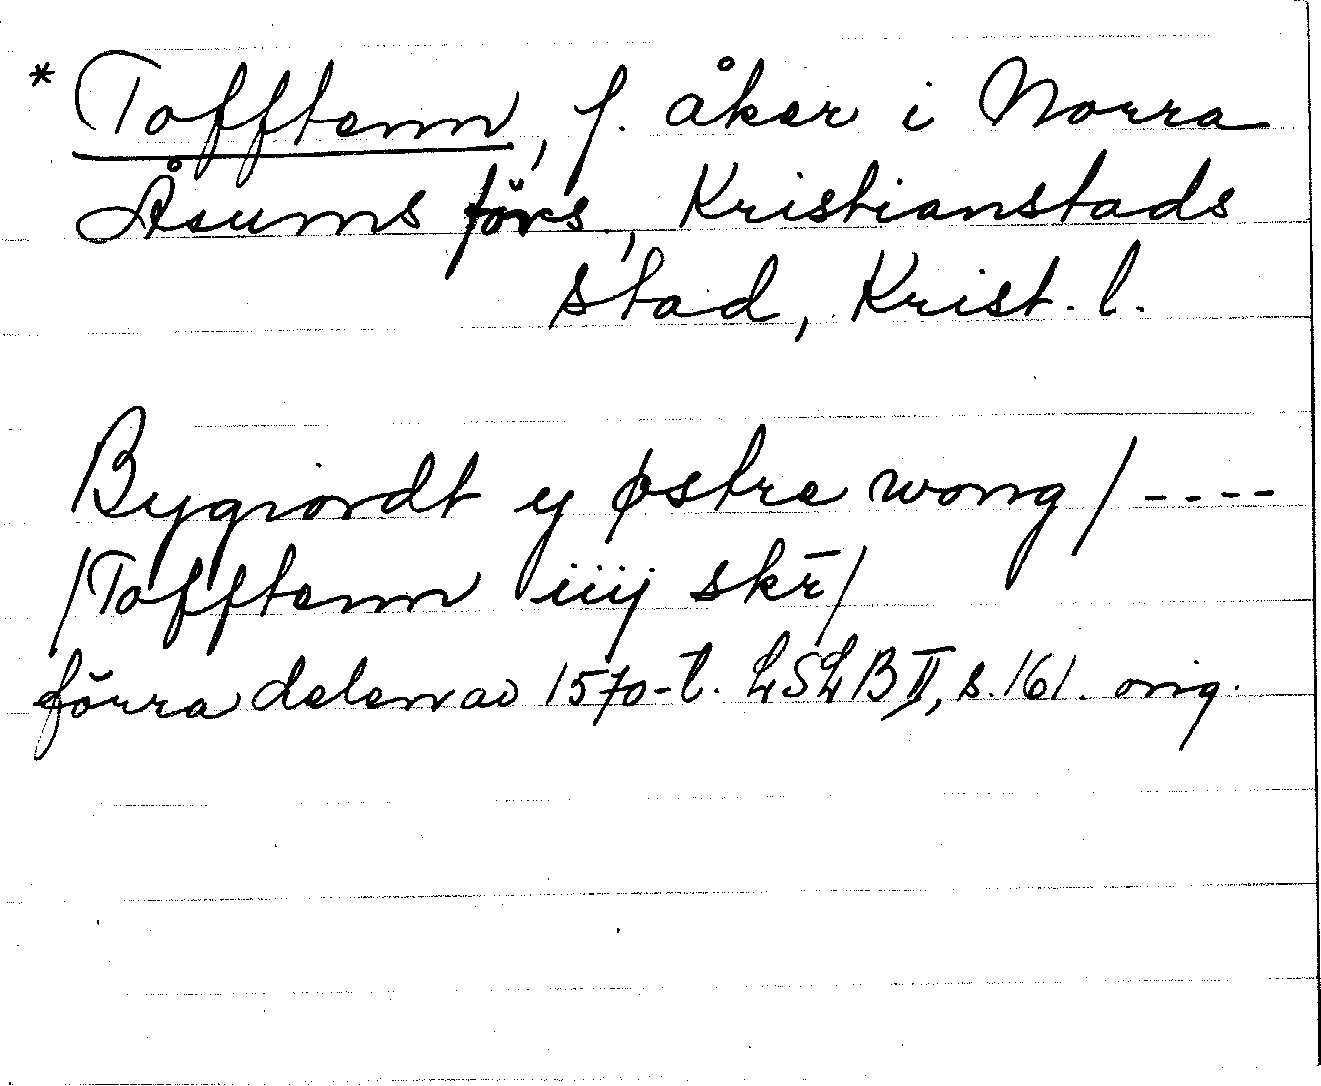 * Tofftenn, f. åker i Norra
Åsums förs., Kristianstads
stad, Krist. l.
Bygiordt y østre wong / ----
/Tofftenn iiij skr̄/
förra delen av 1570-t. LSLB II, s. 161. orig.